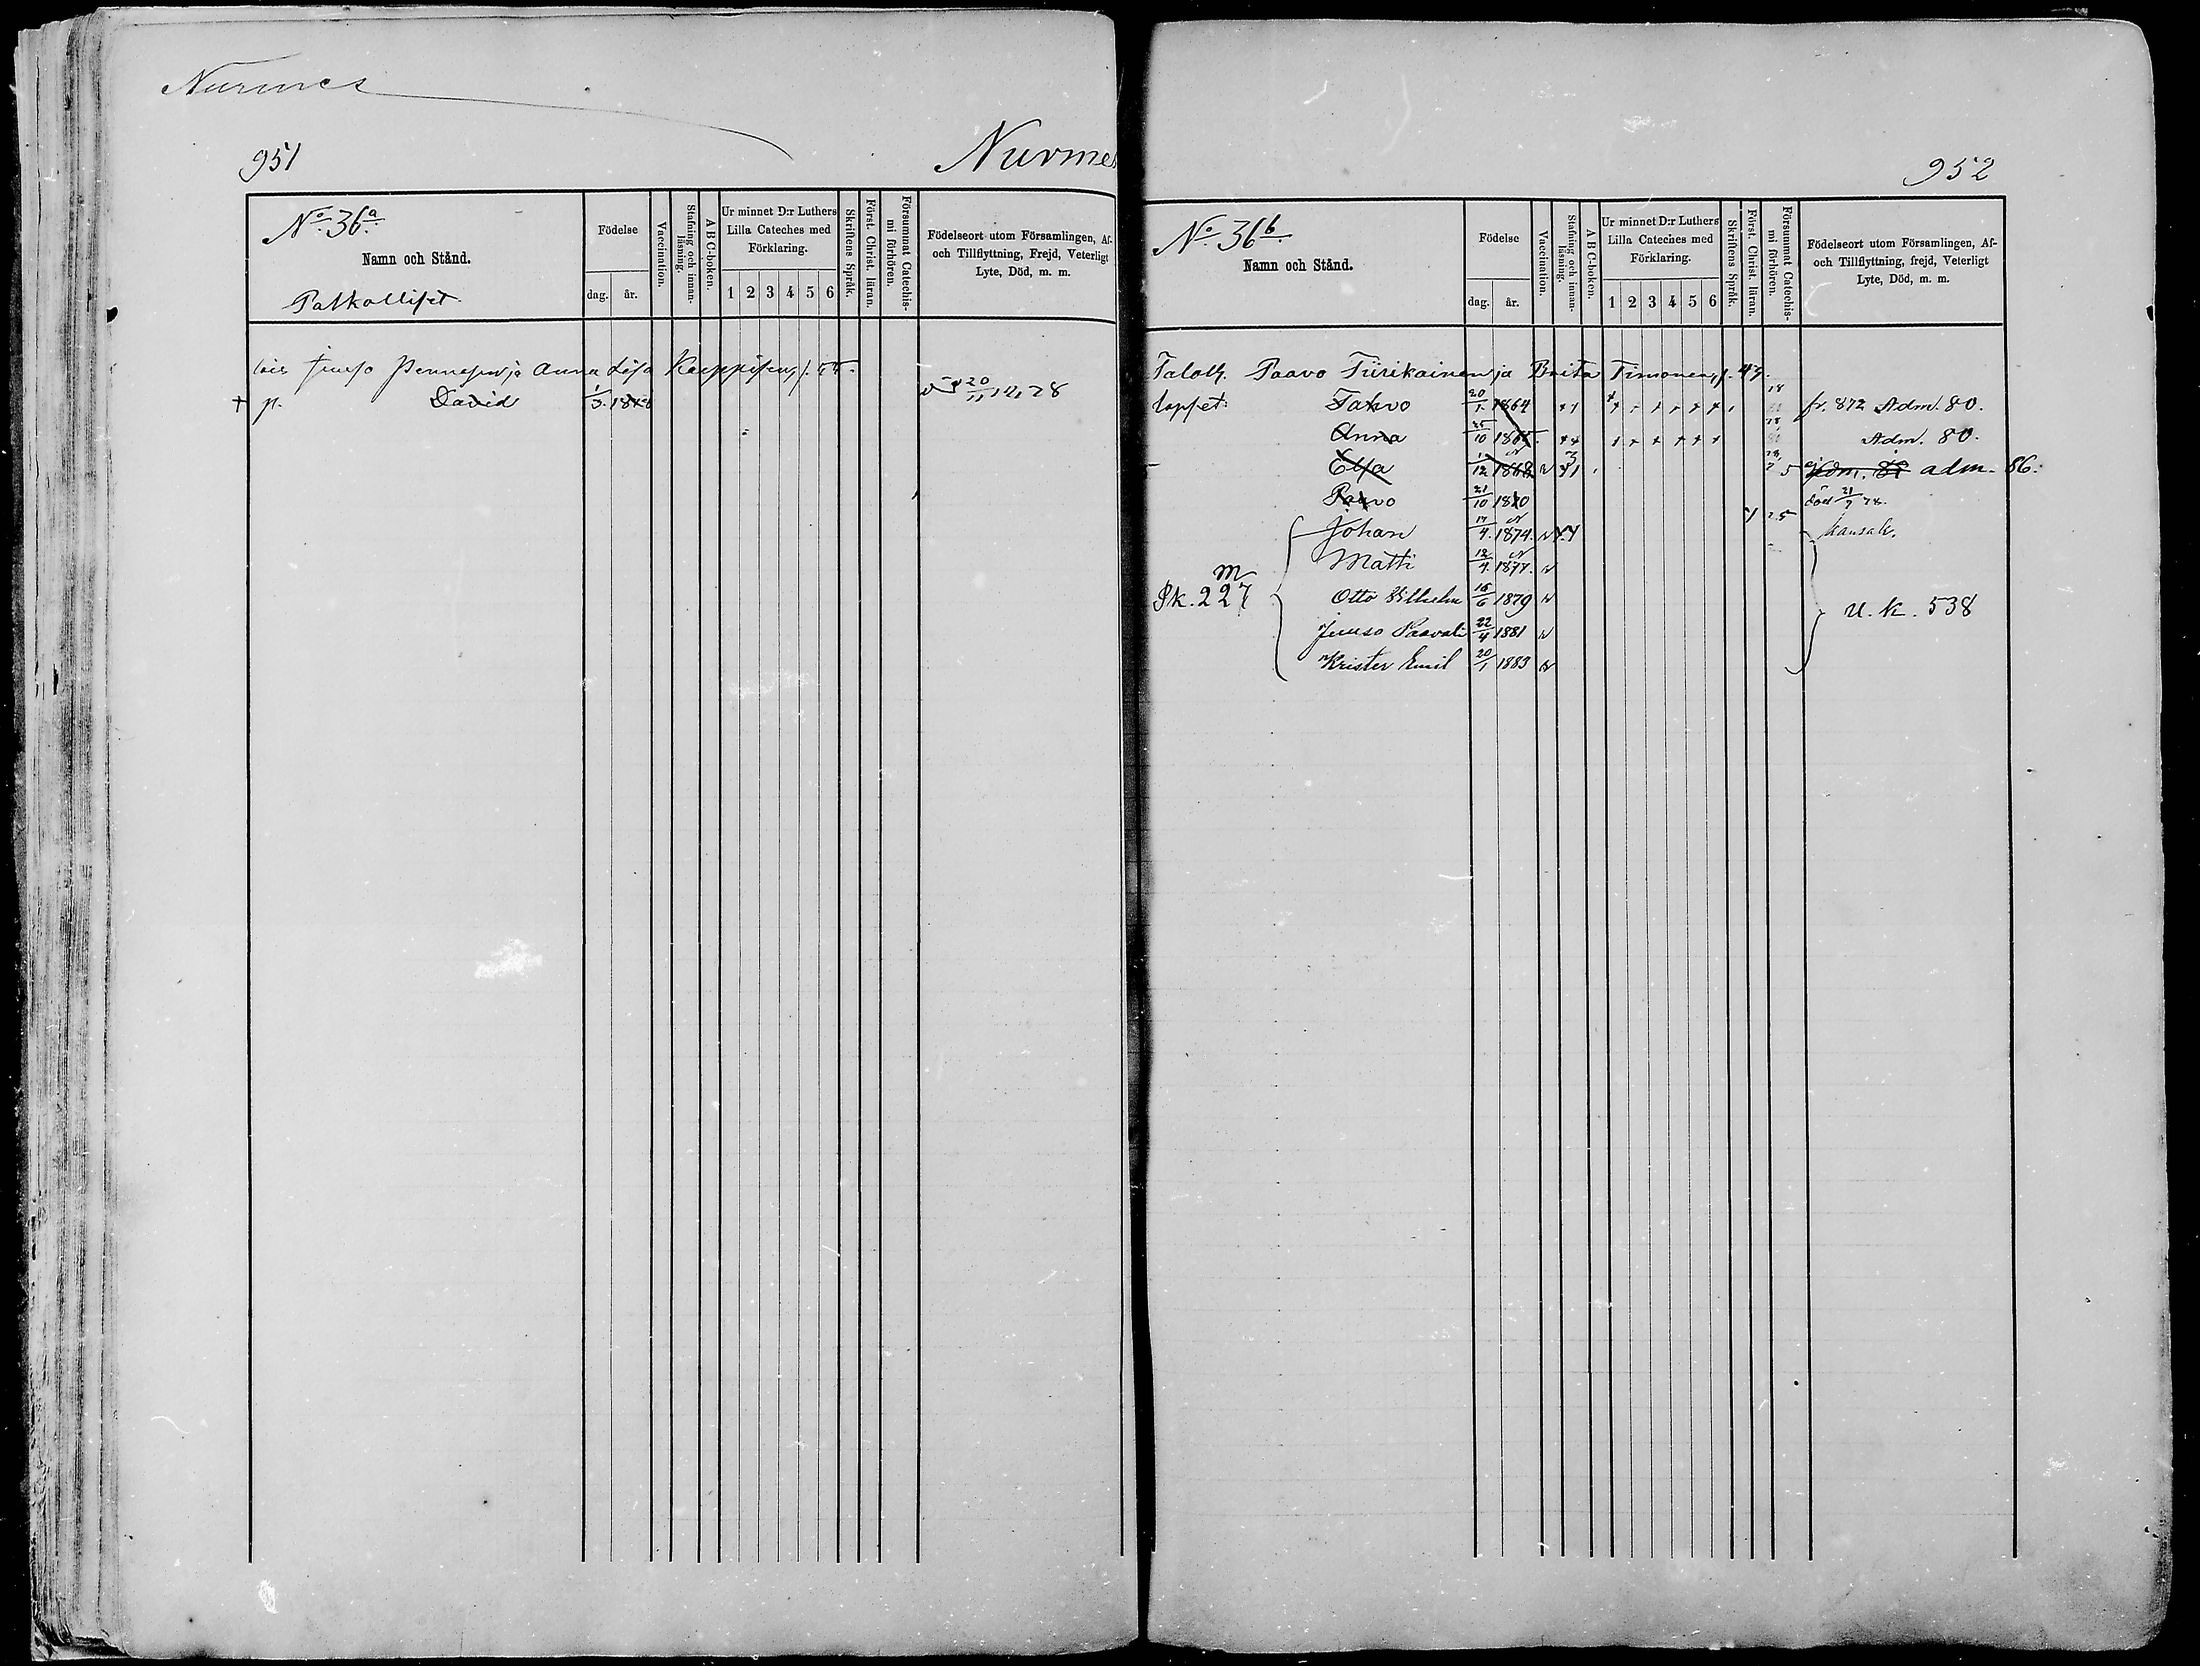 Nurmes
951
Nurmes
No 36a
Namn och Stånd.
Födelse
dag. år.
Vaccination.
Stafning och innan-läsning.
A B C-boken.
Ur minnet D:r Luthers Lilla Cateches med Förklaring.
1 2 3 4 5 6
Skriftens Språk.
Först. Christ. läran.
Försummat Catechis-mi förhören.
Födelseort utom Församlingen, Af- och Tillflyttning, Frejd, Veterligt Lyte, Död, m. m.
Anna Lisa
† p. David
952
No 36b
Namn och Stånd.
Födelse
dag. år.
Vaccination.
Stafning och innan-läsning.
A B C-boken.
Ur minnet D:r Luthers Lilla Cateches med Förklaring.
1 2 3 4 5 6
Skriftens Språk.
Först. Christ. läran.
Försummat Catechis-mi förhören.
Födelseort utom Församlingen, Af- och Tillflyttning, frejd, Veterligt Lyte, Död, m. m.
Paavo Tiirikainen ja Brita Timonen
lapset: Tahvo 20/1 1864 fr. 872 Adm. 80.
Anna 25/10 Adm. 80.
Elsa 1868 adm. 86.
Paavo 21/10 1870 död
Johan 17/4 1874
Matti 12/4 1877
Sk. 227 Otto Vilhelm 16/6 1879 U. K. 538
Juuso Paavali 22/4 1881
Krister Emil 20/1 1883